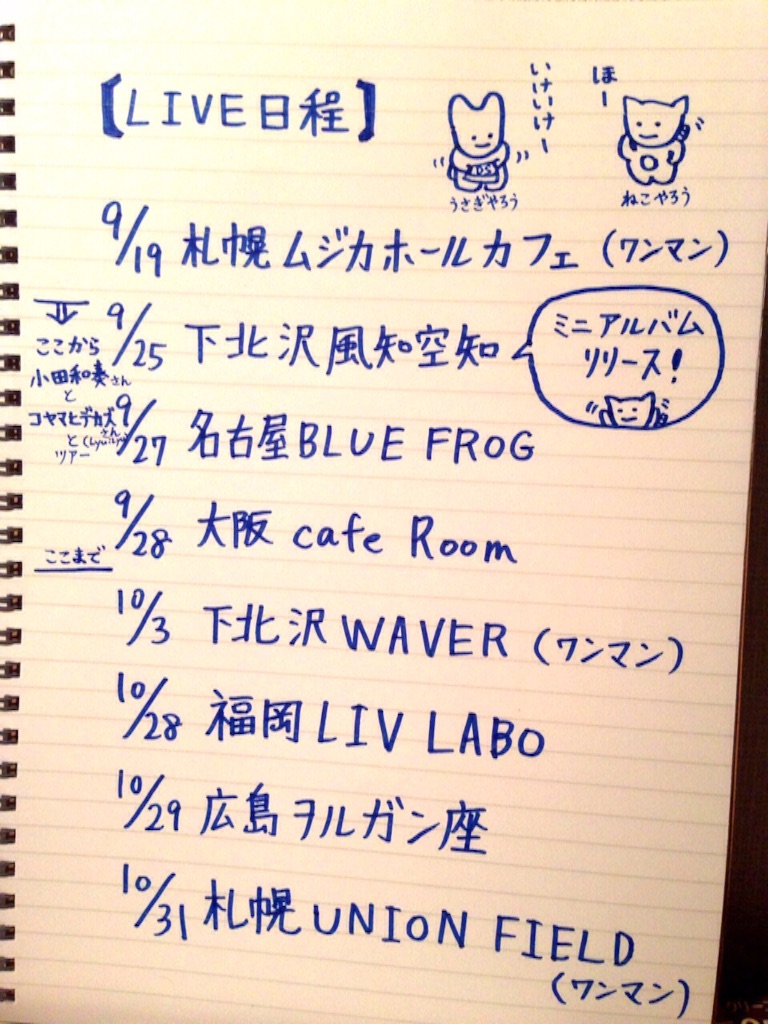 【LIVE日程】
いけいけー
ほー
うさぎやろう
ねこやろう
9/19 札幌ムジカホールカフェ(ワンマン)
9/25 下北沢風知空知
ミニアルバム
リリース!
ここから
小田和奏さん
と
コヤマヒデカズさん
と
ツアー
9/27 名古屋BLUE FROG
9/28 大阪 cafe Room
ここまで
10/3 下北沢WAVER(ワンマン)
10/28 福岡LIV LABO
10/29 広島ヲルガン座
10/31 札幌UNION FIELD
(ワンマン)